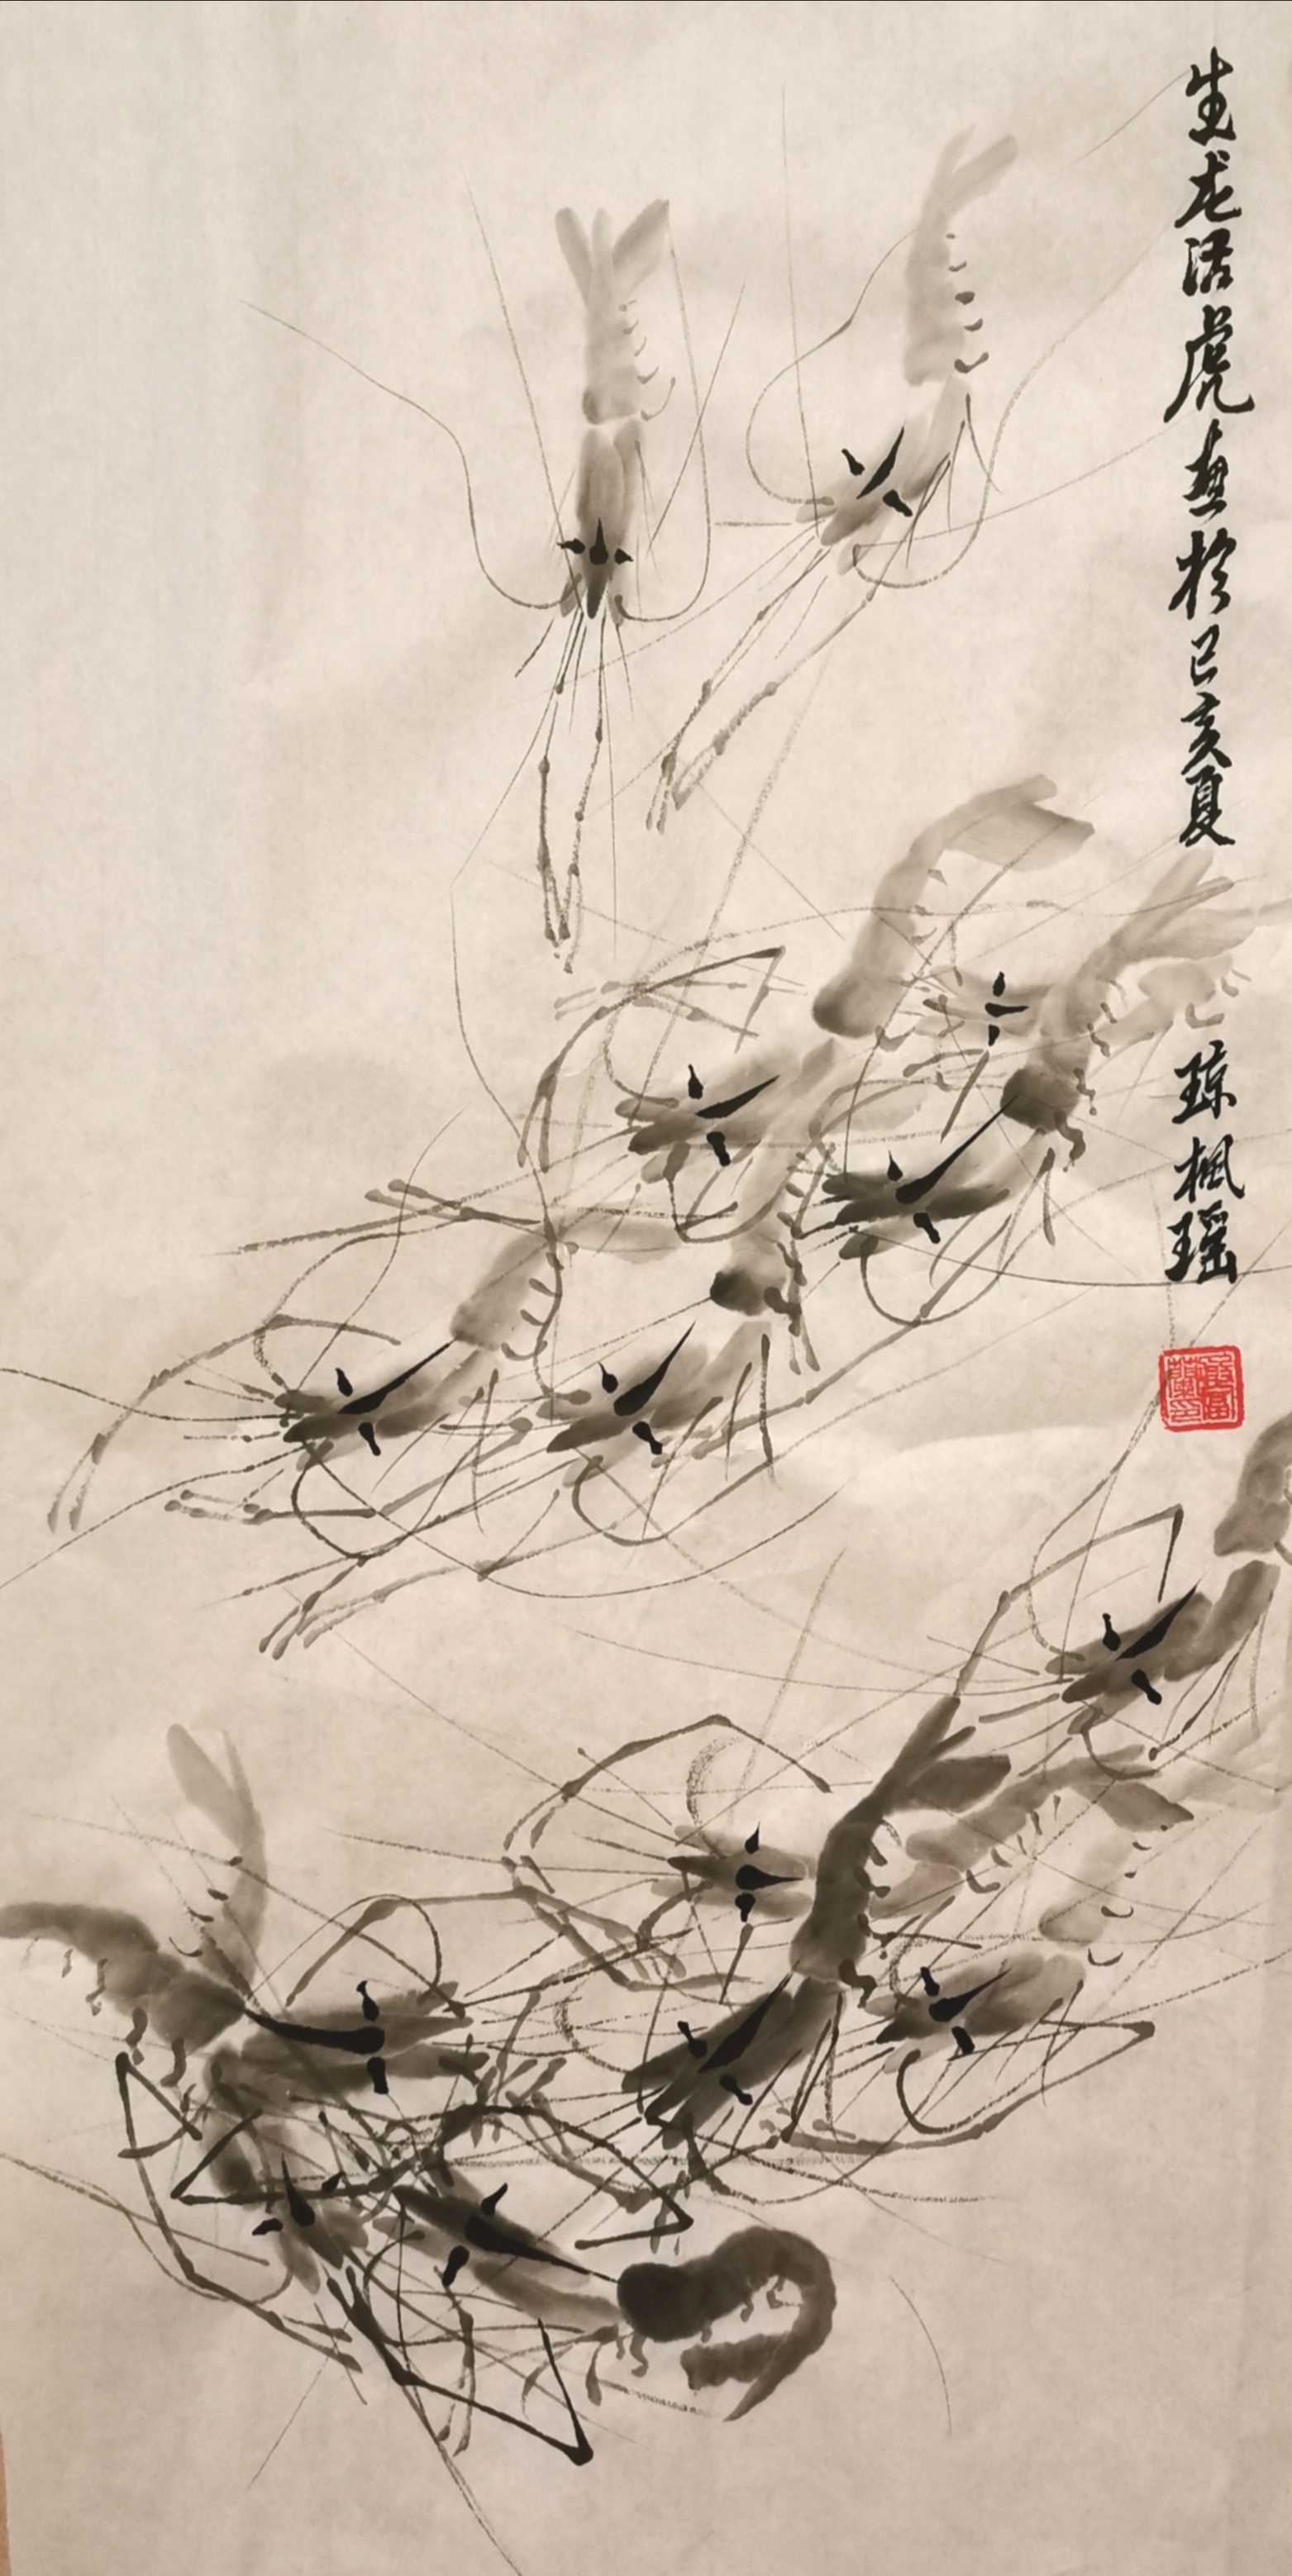 生龙活虎画於己亥夏
琼枫瑶